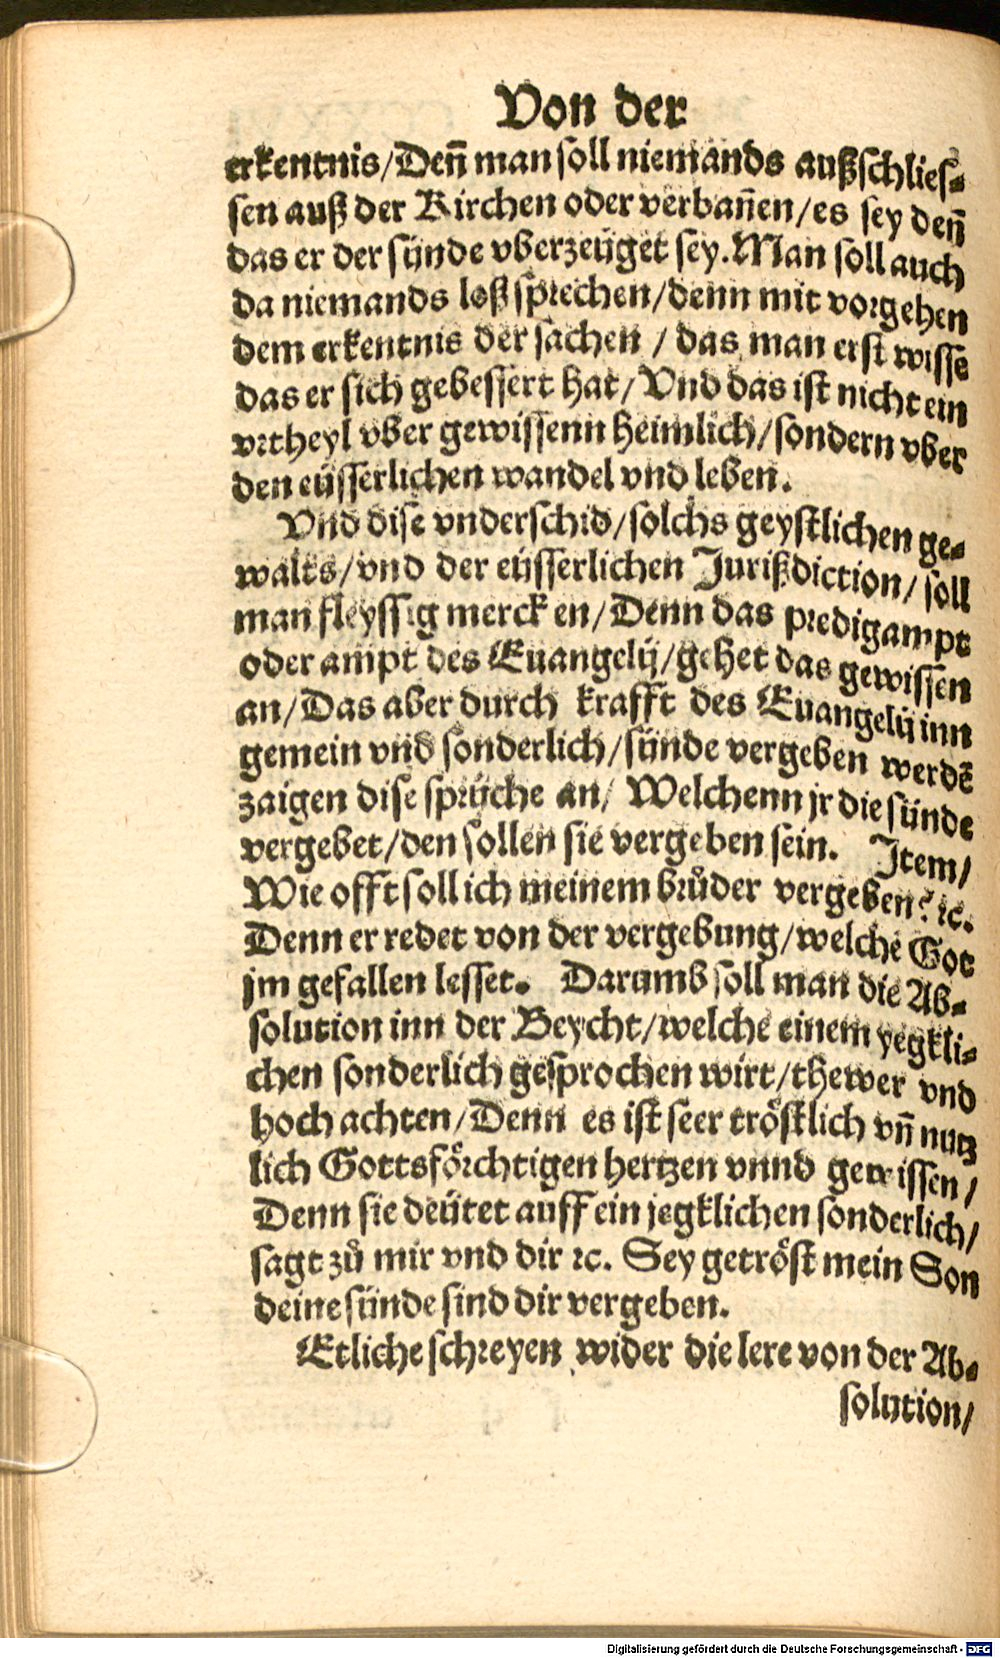 Von der
erkentnis/Deñ man soll niemands außschlies⸗
sen auß der Kirchen oder verbañen/es sey deñ
das er der sünde vberzeüget sey. Man soll auch
da niemands loß sprechen/denn mit vorgehen
dem erkentnis der sachen / das man erst wisse
das er sich gebessert hat/Vnd das ist nicht ein
vrtheyl vber gewissenn heimlich/sondern vber
den eüsserlichen wandel vnd leben.
Vnd dise vnderschid/solchs geystlichen ge⸗
walts/vnd der eüsserlichen Jurißdiction/soll
man fleyssig merck en/Denn das predigampt
oder ampt des Euangelij/gehet das gewissen
an/Das aber durch krafft des Euangelij inn
gemein vnd sonderlich/sünde vergeben werdē
zaigen dise sprüche an/ Welchenn jr die sünde
vergebet/den sollen sie vergeben sein. Item/
Wie offt soll ich meinem brůder vergeben? ꝛc.
Denn er redet von der vergebung/welche Got
jm gefallen lesset. Darumb soll man die Ab⸗
solution inn der Beycht/welche einem yegkli⸗
chen sonderlich gesprochen wirt/thewer vnd
hoch achten/Denn es ist seer tröstlich vñ nutz
lich Gottsförchtigen hertzen vnnd gewissen/
Denn sie deütet auff ein jegklichen sonderlich/
sagt zů mir vnd dir ꝛc. Sey getröst mein Son
deine sünde sind dir vergeben.
Etliche schreyen wider die lere von der Ab⸗
solution/
Digitalisierung gefördert durch die Deutsche Forschungsgemeinschaft - DFG